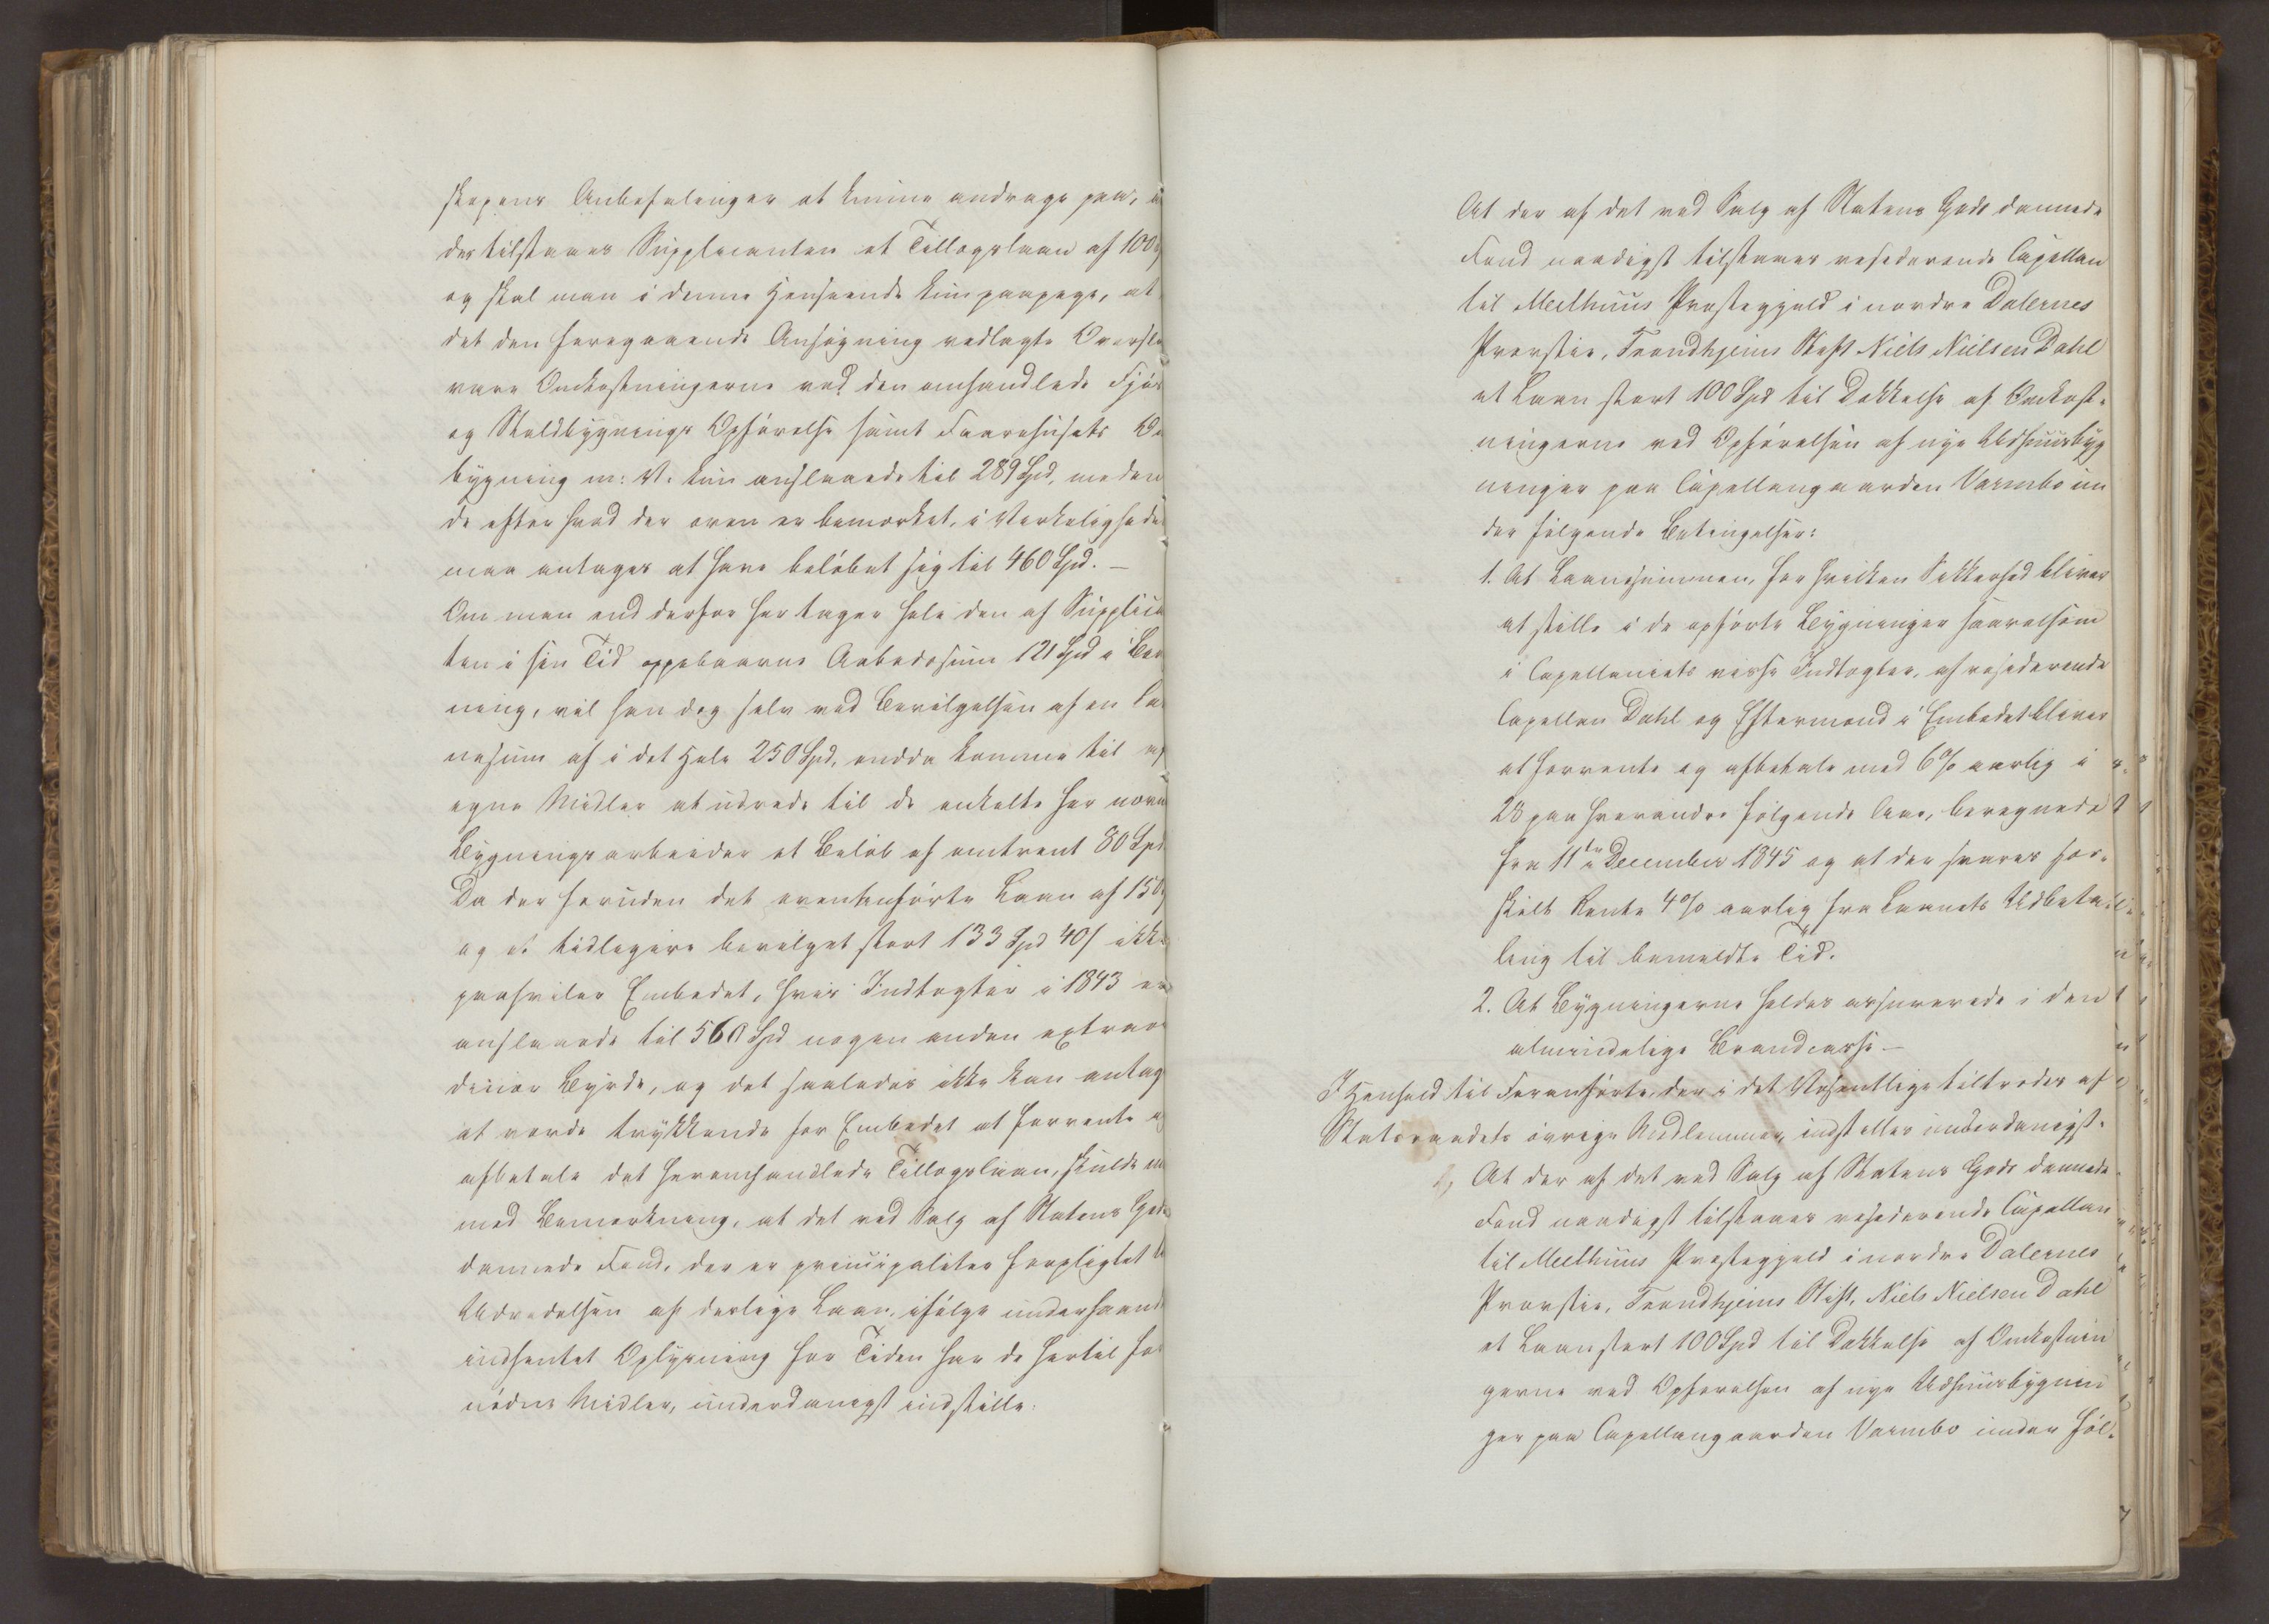 skopens Anbefalinger at kunne andrage paa, a
der tilstaaes Supplicanten et Tillægslaan af 100
og skal man i denne Henseende kun paapege, at
det den foregaaende Ansøgning vedlagte Oversla
vare Omkostningerne ved den omhandlede Fjøs
og Staldbygnings Opførelse samt Faarehusets O
bygning m: V. kun anslaaede til 289 Spd, meden
de efter hvad der oven er bemærket, i Virkelighede
maa antages at have beløbet sig til 460 Spd. –
Om man end derfor her tager hele den af Supplica
ten i sin Tid oppebaarne Aabodssum 121 Spd i Ber
ning, vil han dog selv ved Bevilgelsen af en Laa
nesum af i det Hele 250 Spd, endda komme til af
egne Midler at udrede til de enkelte her nævn
Bygningsarbeider et Beløb af omtrent 80 Spd
Da der foruden det ovenanførte Laan af 150
og et tidligere bevilget stort 133 Spd 40 s ikke
paahviler Embedet, hvis Indtægter i 1843 er
anslaaede til 560 Spd nogen anden extraor
dinær Byrde, og det saaledes ikke kan antag
at vorde trykkende for Embedet at forrente o
afbetale det heromhandlede Tillægslaan, skulde m
med Bemærkning, at det ved Salg af Statens Gods
dannede Fond, der er principaliter forpligtet t
Udredelsen af deslige Laan, ifølge underhaand
indhentet Oplysning for Tiden har de hertil for
nødne Midler, underdanigst indstille:
At der af det ved Salg af Statens Gods dannede
Fond naadigst tilstaaes residerende Capellan
til Meelhuus Præstegjeld i nordre Dalernes
Provstie, Trondhjems Stift Niels Nielsen Dahl
et Laan stort 100 Spd til Dækkelse af Omkost-
ningerne ved Opførelsen af nye Udhuusbyg
ninger paa Capellangaarden Varmbo un
der følgende Betingelser:
1. At Laanesummen, for hvilken Sikkerhed bliver
at stille i de opførte Bygninger saavelsom
i Capellaniets visse Indtægter, af residerende
Capellan Dahl og Eftermænd i Embedet bliver
at forrente og afbetale med 6 % aarlig i
28 paa hverandre følgende Aar, beregnede
fra 11te December 1845 og at der svares for-
skilt Rente 4 % aarlig fra Laanets Udbeta-
ling til bemeldte Tid.
2. At Bygningerne holdes assurerede i den
almindelige Brandcasse –
I Henhold til Foranførte, der i det Væsentlige tiltrædes af
Statsraadets øvrige Medlemmer, indstilles underdanigst.
1, At der af det ved Salg af Statens Gods dannede
Fond naadigst tilstaaes residerende Capellan
til Meelhuus Præstegjeld i nordre Dalernes
Provstie, Trondhjems Stift, Niels Nielsen Dahl
et Laan stort 100 Spd til Dækkelse af Omkostnin
gerne ved Opførelsen af nye Udhuusbygnin
ger paa Capellangaarden Varmbo under føl-